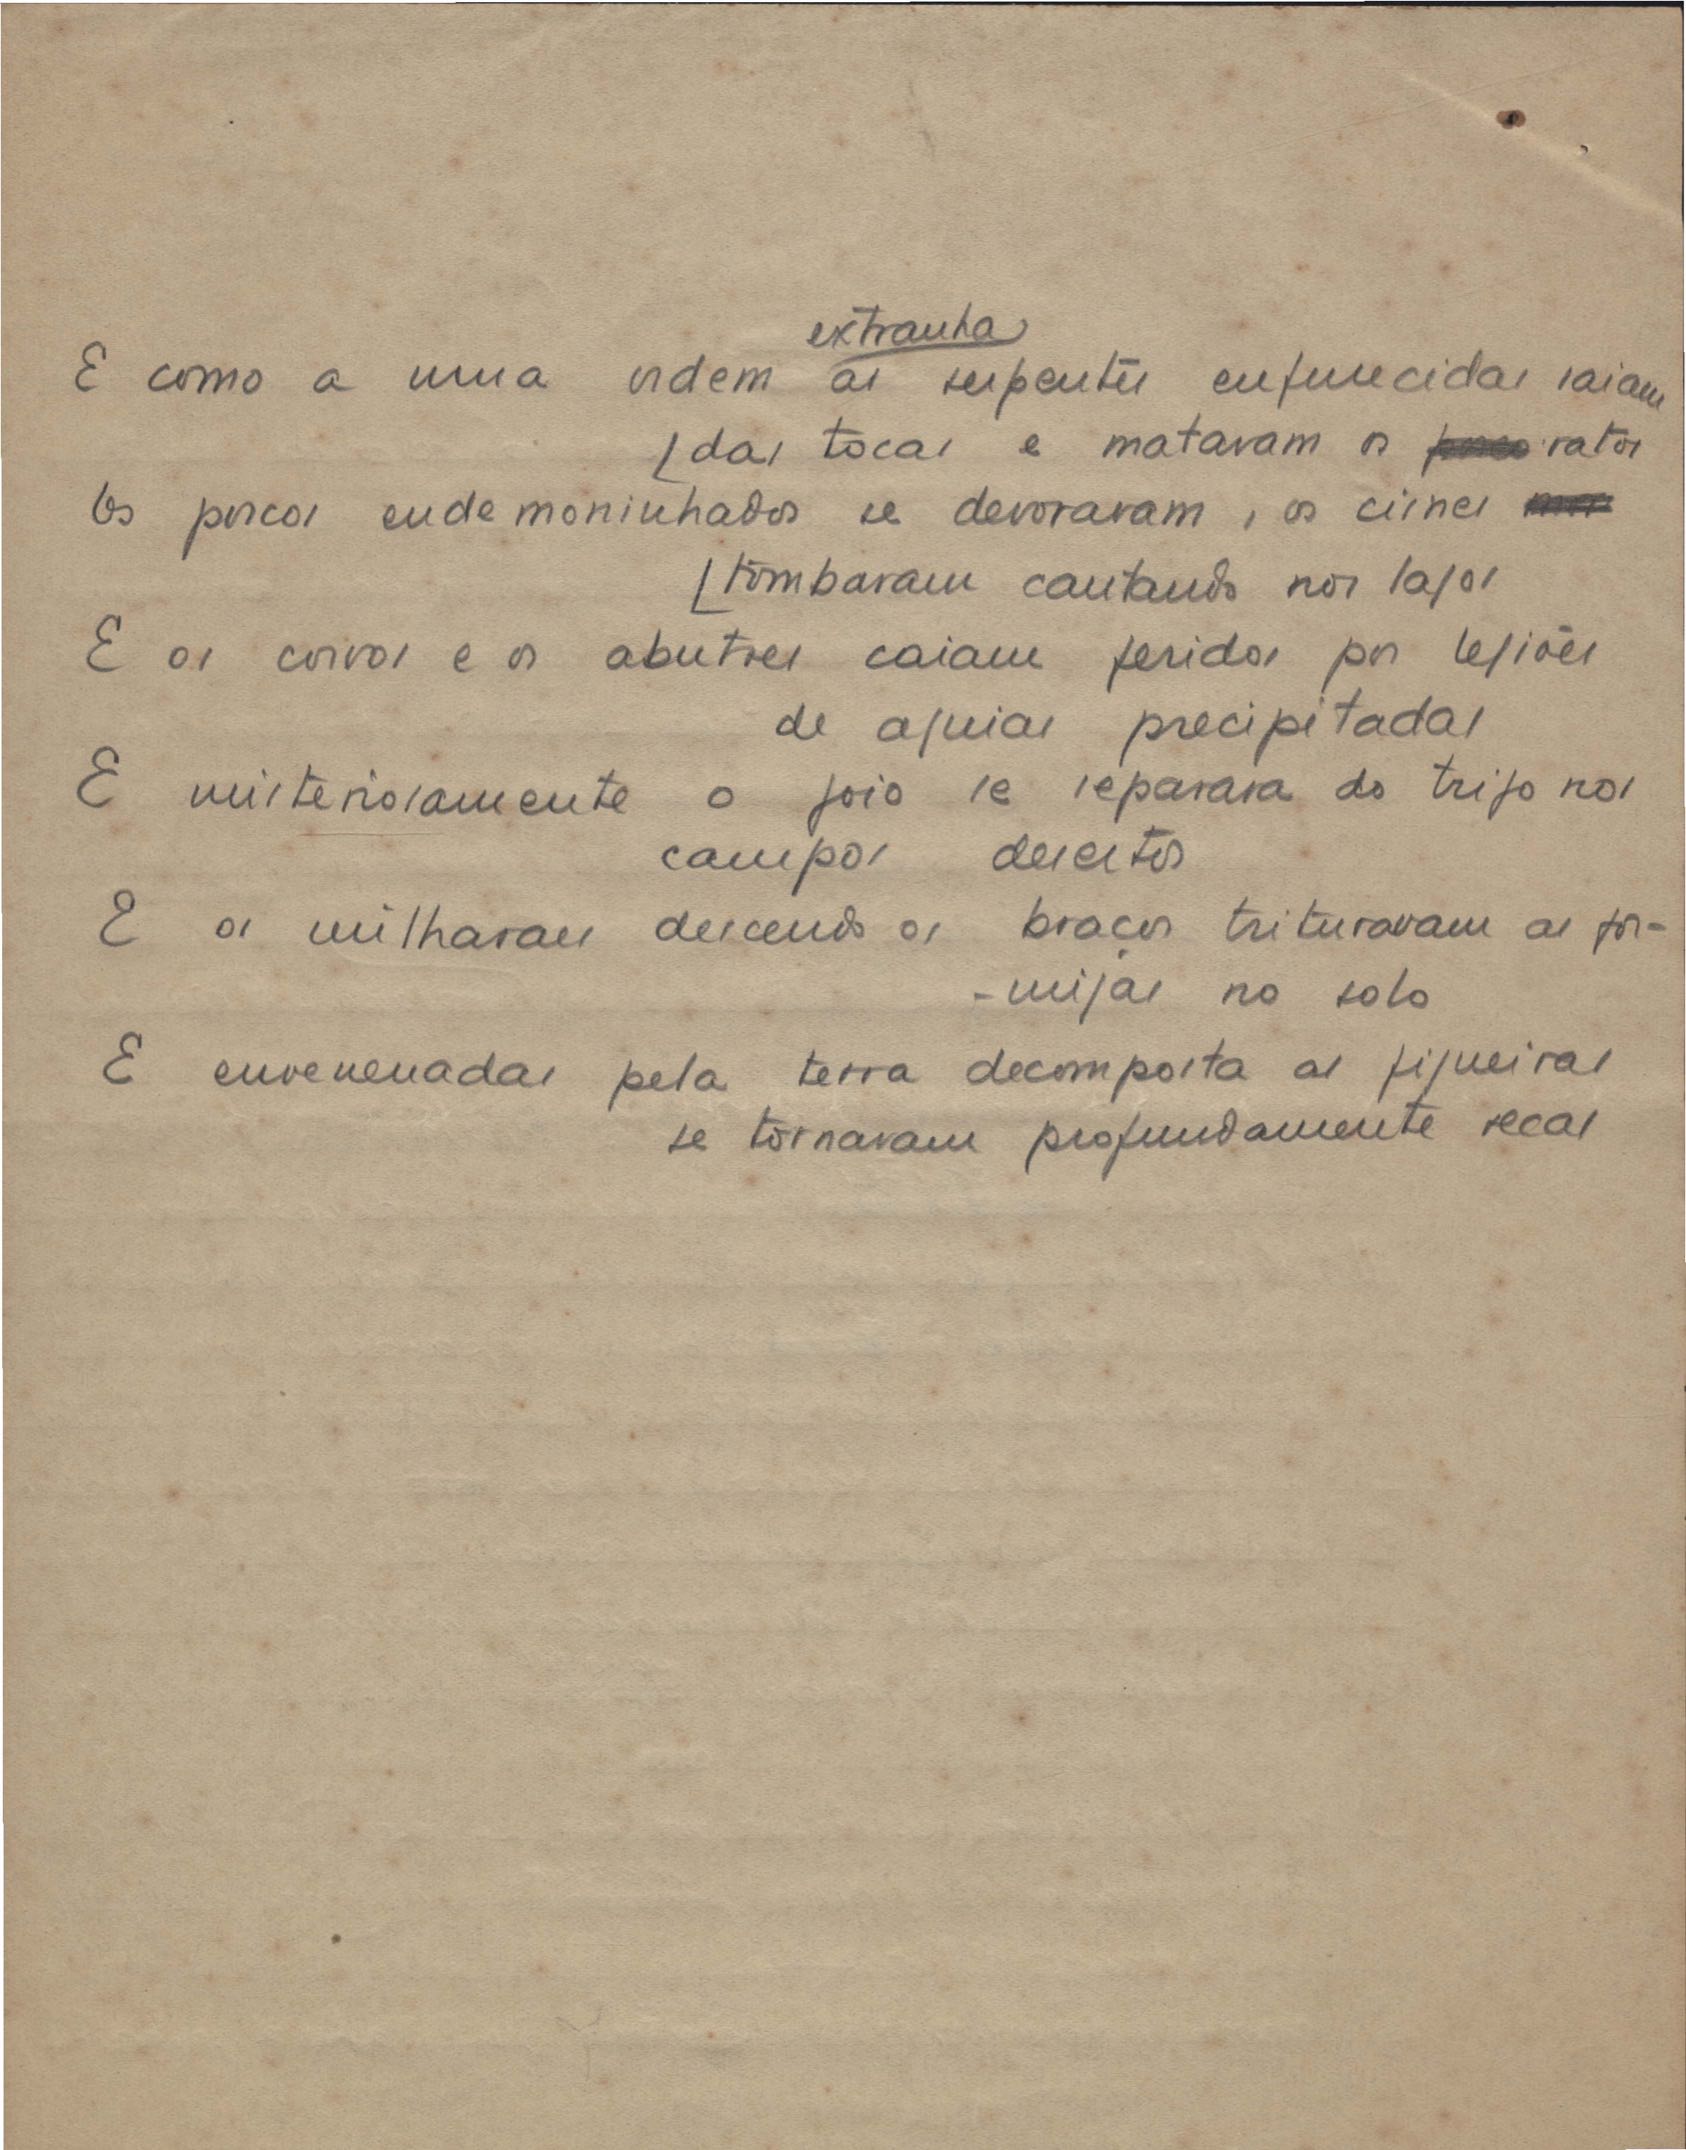 extranha
E como a uma ordem as serpentes enfurecidas saiam
[das tocas e matavam os ratos
Os porcos endemoninhados se devoravam, os cisnes
[tombavam cantando nos lagos
E os corvos e os abutres caiam feridos por legiões
de aguias precipitadas
E misteriosamente o joio se separava do trigo nos
campos desertos
E os milharaes descendo os braços trituravam as for-
-migas no solo
E envenenadas pela terra decomposta as figueiras
se tornavam profundamente secas